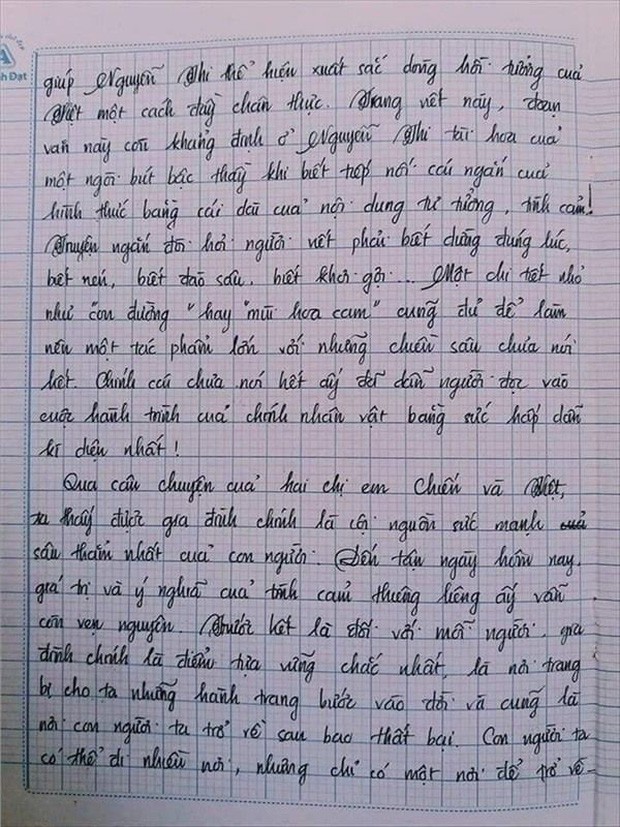 h Đạt
giúp Nguyễn Thi thể hiện xuất sắc dòng hồi tưởng của
Việt một cách đầy chân thực. Trang viết này, đoạn
văn này còn khẳng định ở Nguyễn Thi tài hoa của
một ngòi bút bậc thầy khi biết tiếp nối cái ngắn của
hình thức bằng cái dài của nội dung tư tưởng, tình cảm!
Truyện ngắn đòi hỏi người viết phải biết dừng đúng lúc,
biết nén, biết đào sâu, biết khơi gợi... Một chi tiết nhỏ
như "con đường" hay "mùi hoa cam" cũng đủ để làm
nên một tác phẩm lớn với những chiều sâu chưa nói
hết. Chính cái chưa nói hết ấy đã dẫn người đọc vào
cuộc hành trình của chính nhân vật bằng sức hấp dẫn
kì diệu nhất!
Qua câu chuyện của hai chị em Chiến và Việt,
ta thấy được gia đình chính là cội nguồn sức mạnh của
sâu thẳm nhất của con người. Đến tận ngày hôm nay,
giá trị và ý nghĩa của tình cảm thiêng liêng ấy vẫn
còn vẹn nguyên. Trước hết là đối với mỗi người, gia
đình chính là điểm tựa vững chắc nhất, là nơi trang
bị cho ta những hành trang bước vào đời và cũng là
nơi con người ta trở về sau bao thất bại. Con người ta
có thể đi nhiều nơi, nhưng chỉ có một nơi để trở về-